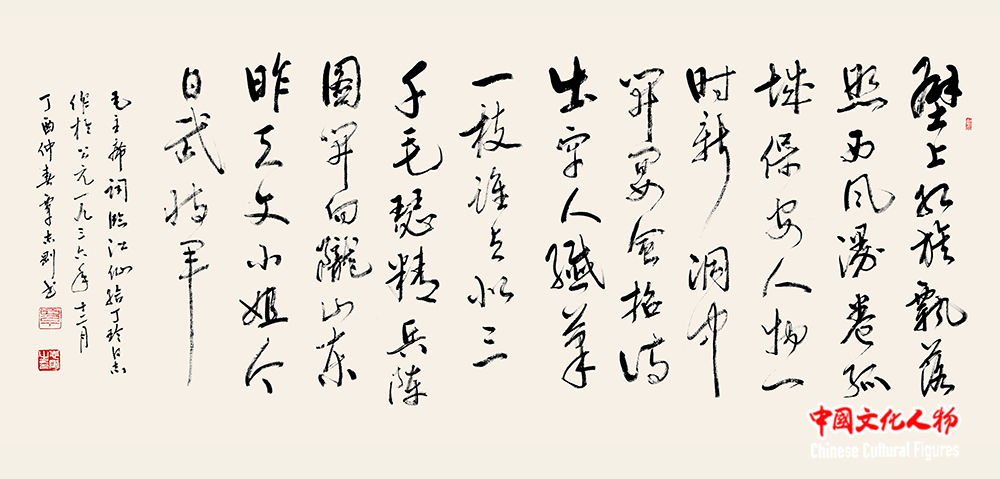 壁上红旗飘落
照西风漫卷孤
城保安人物一
时新洞中
開宴会招待
出牢人纖笔
一枝谁与似三
千毛瑟精兵阵
圖開向隴山东
昨天文小姐今
日武将军
毛主席词临江仙给丁玲同志
作於公元一九三六年十二月
丁酉仲春覃志刚书
中國文化人物
Chinese Cultural Figures